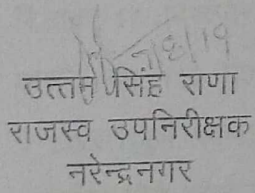 उत्तम सिंह राणा
राजस्व उपनिरीक्षक
नरेन्द्रनगर